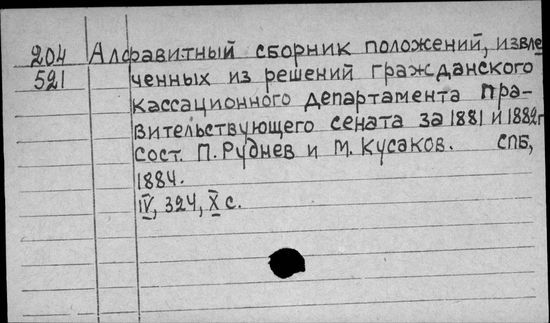 204 Алфавитный сборник положений, извле
521 ченных из решений гражданского
кассационного департамента Пра-
вительствующего сената за 1881 и 1882г
Сост. П. Руднев и М. Кусаков. СПБ,
1884.
IV, 324, X с.